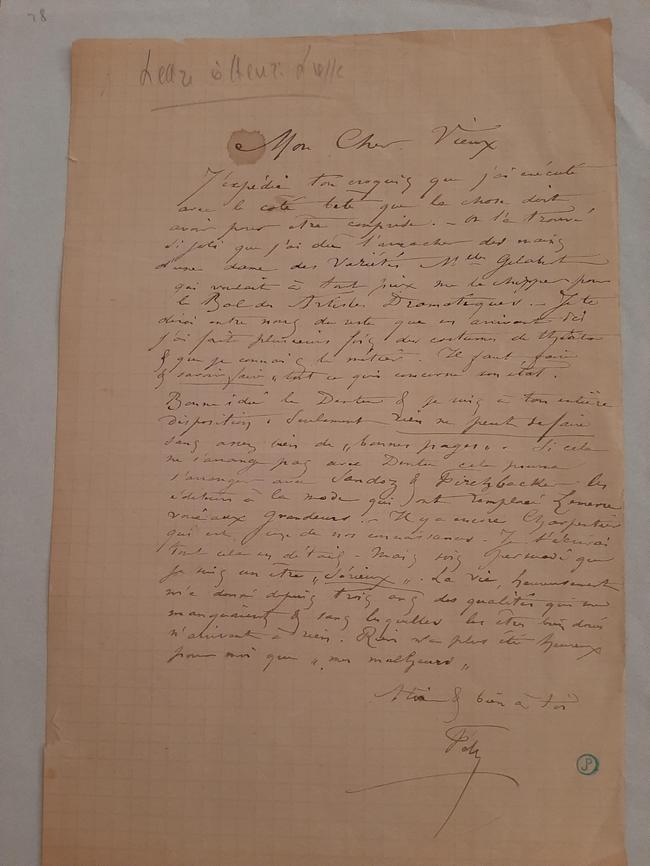 78
Lettre à Henri Liesse
Mon Cher Vieux
J'expédie ton croquis que j'ai exécuté
avec le côté bête que la chose doit
avoir pour être comprise. – On l'a trouvé
si joli que j'ai dû l'arracher des mains
d'une dame des Variétés Mlle
qui voulait à tout prix me le chipper pour
le Bal des Artistes Dramatiques. – Je te
dirai entre nous du reste que en arrivant ici
j'ai fait plusieurs fois des costumes de théâtre
& que je connais le métier. Il faut faire
& savoir faire „ tout ce qui concerne son état.
Bonne idée le Dentu & je suis à ton entière
disposition. Seulement rien ne peut se faire
sans assez bien de „ bonnes pages „. Si cela
ne s'arrange pas avec Dentu cela pourra
s'arranger avec Sandoz & Fischbacher les
éditeurs à la mode qui ont remplacé Lemerre
voué aux Grandeurs. – Il y a encore Charpentier
qui est une de nos connaissances. – Je t'écrirai
tout cela en détail – Mais sois persuadé que
je suis un être „ sérieux „. La vie, heureusement
m'a donné depuis trois ans des qualités qui me
manquaient & sans lesquelles les êtres bien doués
n'arrivent à rien. Rien n'a plus été heureux
pour moi que „ mes malheurs „
& bien à toi
Fély